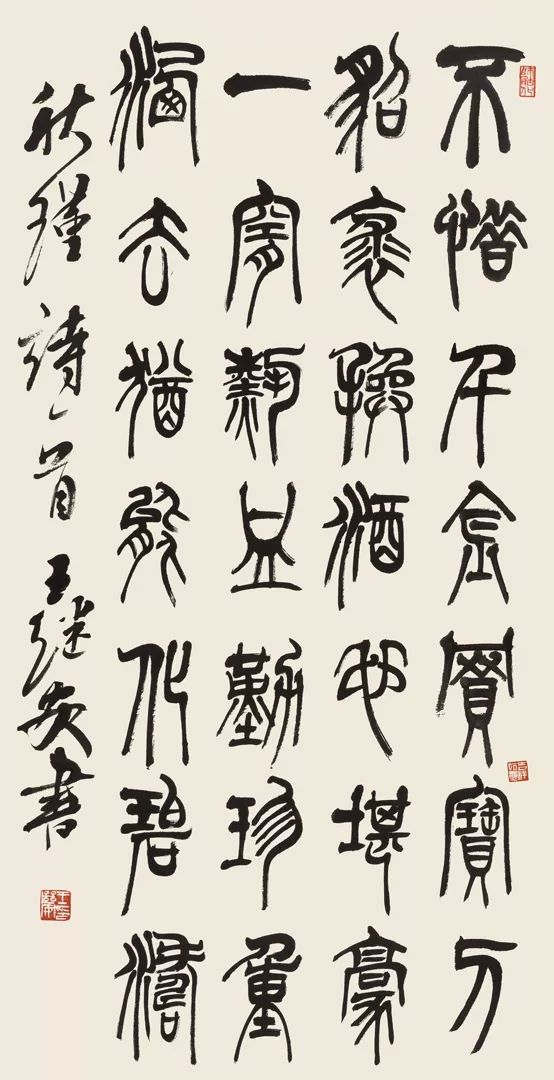 不惜千金買寶刀
貂裘換酒也堪豪
一腔熱血勤珍重
灑去猶能化碧濤
秋瑾詩一首 王継安書